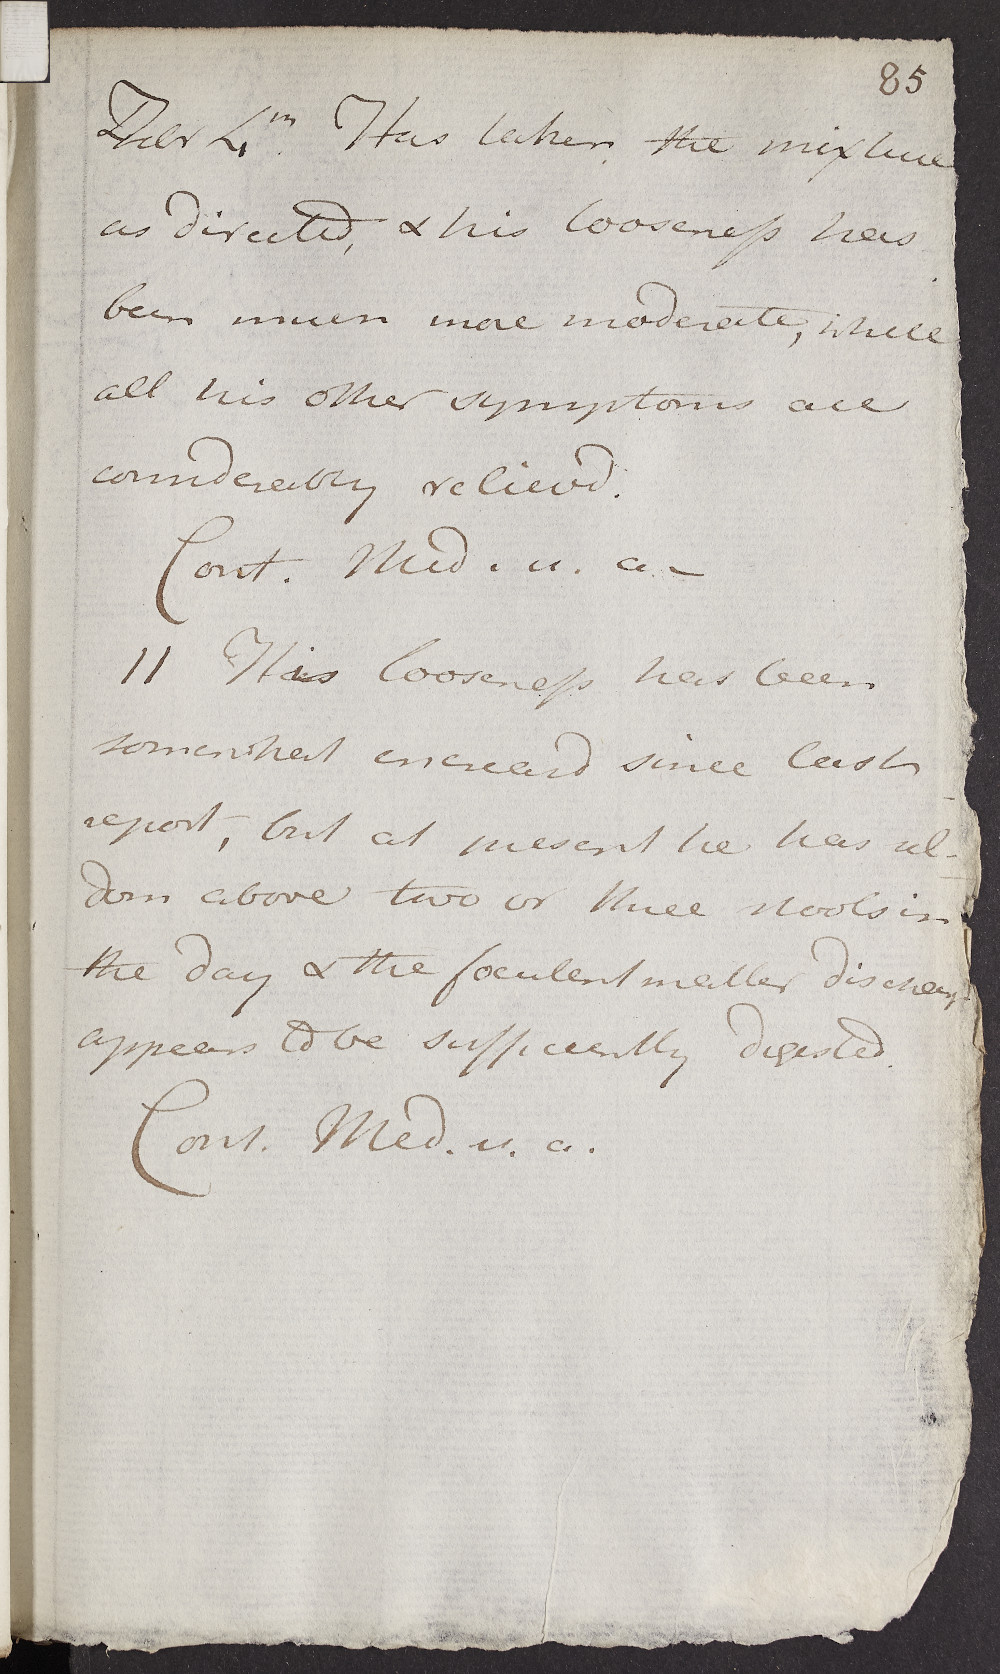 85
Febr 4th. Has taken the mixture
as directed, & his looseness has
been much more moderate, while
all his other symptoms are
considerably relievd.
Cont. Med. u. a.
11 His looseness has been
somewhat encreasd since last
report, but at present he has sel-
dom above two or three stools in
the day & the foeculent matter dischargd
appears to be sufficiently digested.
Cont. Med. u. a.